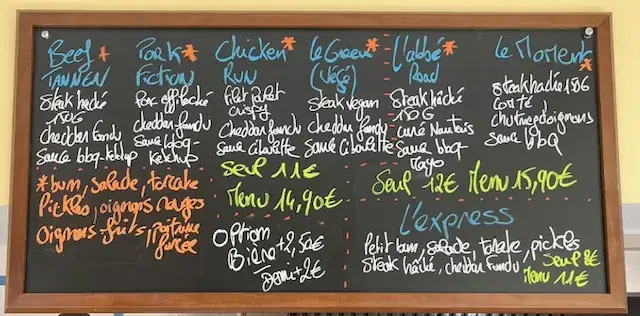 Beef *
TANNEN
Steak haché
150G
Cheddar fondu
Sauce bbq-ketchup
Pork *
FICTION
Porc effiloché
cheddar fondu
Sauce bbq-
ketchup
Chicken *
RUN
Filet Poulet
crispy
Cheddar fondu
Sauce Ciboulette
le Green *
(Végé)
Steak vegan
Cheddar fondu
Sauce Ciboulette
L'abbé *
Road
Steak hâché
150G
Curé Nantais
Sauce bbq-
mayo
le Moment *
steak haché 150G
Comté
chutney d'oignons
Sauce bbQ
*bun, salade, tomate
Pickles, oignons rouges
Oignons frits, poitrine
fumée
Seul 11€
Menu 14,90€
Seul 12€ Menu 15,90€
Option
Bière +2,50€
Demi +2€
L'express
Petit bun, salade, tomate, pickles
Steak hâché, cheddar fondu
Seul 8€
Menu 11€